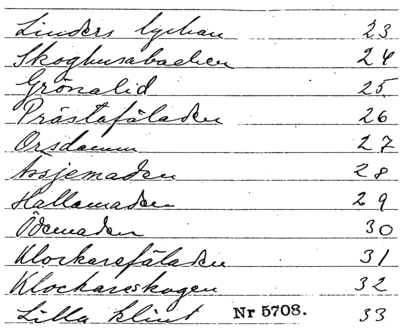 Linders lyckan 23
Skoghusabacken 24
Grönalid 25
Prästafäladen 26
Orsdamm 27
Assjemaden 28
Hallamaden 29
Ödemaden 30
Klockarefäladen 31
Klockareskogen 32
Lilla klint Nr 5708. 33